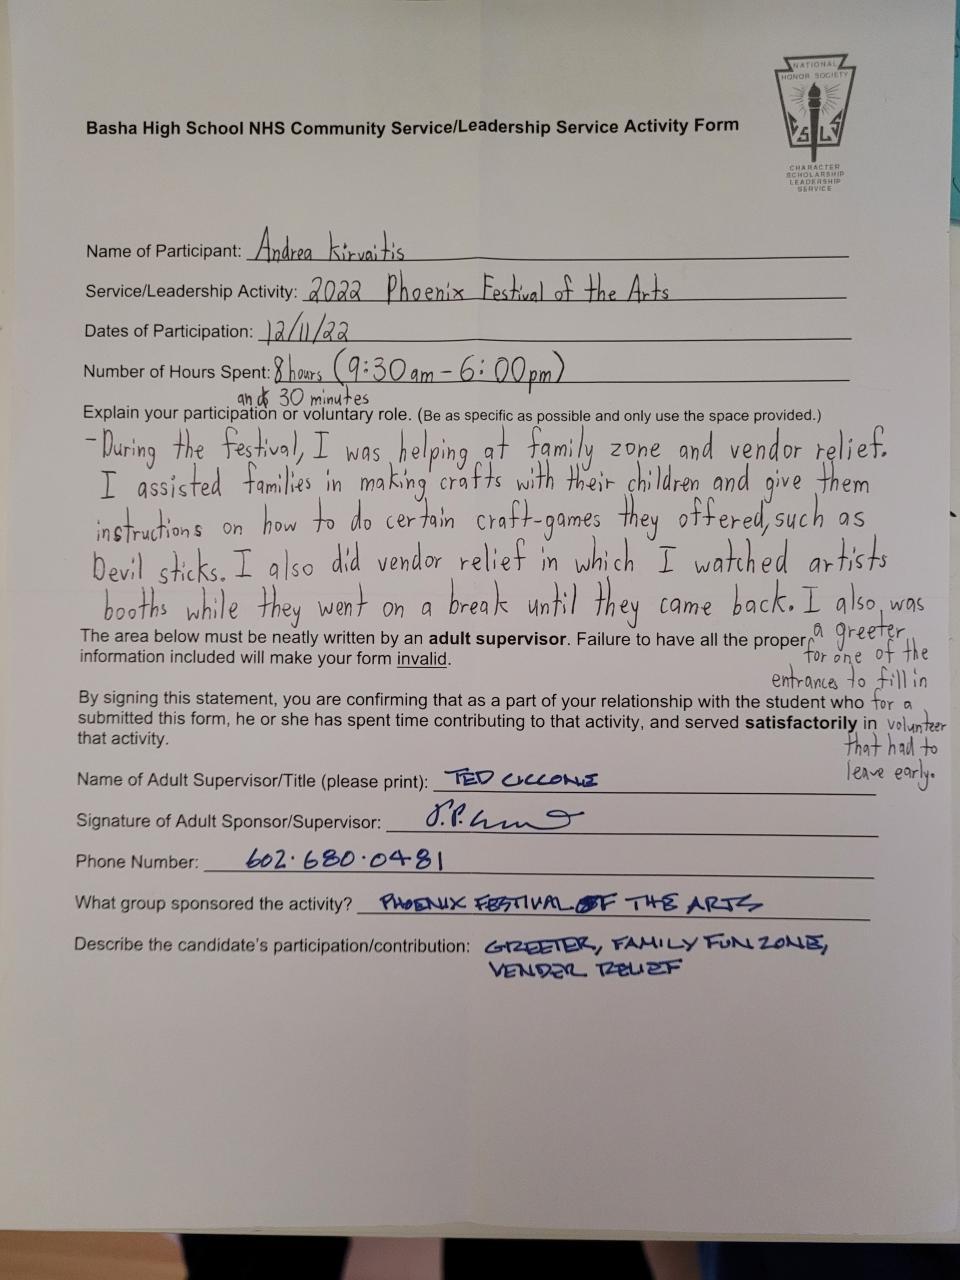 NATIONAL
HONOR SOCIETY
S L S
CHARACTER
SCHOLARSHIP
LEADERSHIP
SERVICE
Basha High School NHS Community Service/Leadership Service Activity Form
Name of Participant: Andrea Kirvaitis
Service/Leadership Activity: 2022 Phoenix Festival of the Arts
Dates of Participation: 12/11/22
Number of Hours Spent: 8 hours (9:30 am - 6:00 pm)
and 30 minutes
Explain your participation or voluntary role. (Be as specific as possible and only use the space provided.)
- During the festival, I was helping at family zone and vendor relief.
I assisted families in making crafts with their children and give them
instructions on how to do certain craft-games they offered, such as
Devil sticks. I also did vendor relief in which I watched artists
booths while they went on a break until they came back. I also was
a greeter
for one of the
entrances to fill in
for a
volunteer
that had to
leave early.
The area below must be neatly written by an adult supervisor. Failure to have all the proper
information included will make your form invalid.
By signing this statement, you are confirming that as a part of your relationship with the student who
submitted this form, he or she has spent time contributing to that activity, and served satisfactorily in
that activity.
Name of Adult Supervisor/Title (please print): TED CICCONE
Signature of Adult Sponsor/Supervisor:
Phone Number: 602·680·0481
What group sponsored the activity? PHOENIX FESTIVAL OF THE ARTS
Describe the candidate's participation/contribution: GREETER, FAMILY FUN ZONE,
VENDER RELIEF